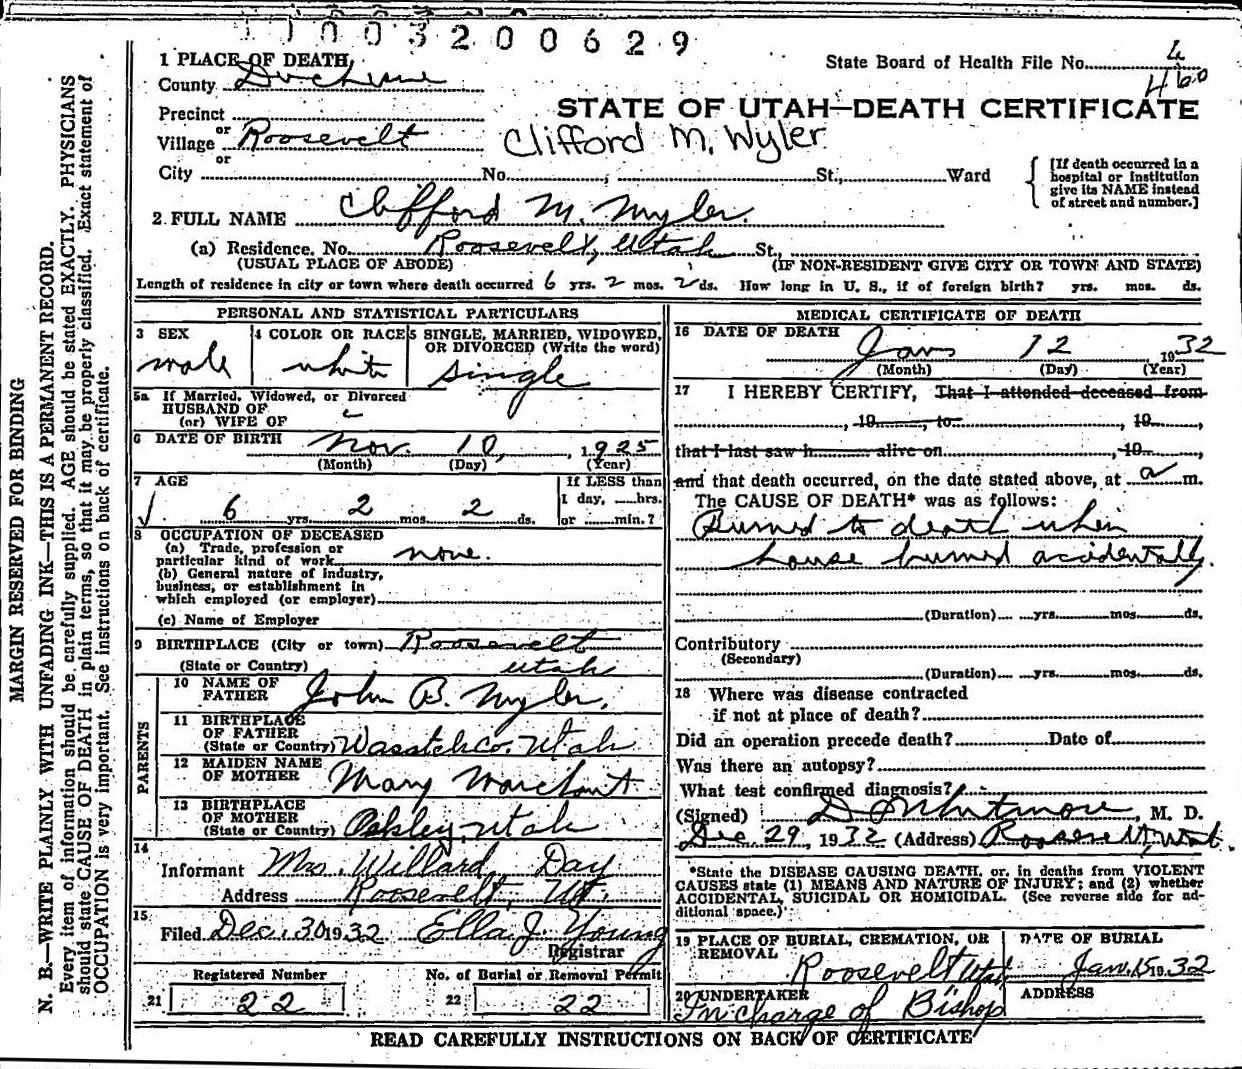 11003200629
1 PLACE OF DEATH
State Board of Health File No. 4
County Duchesne
460
Precinct
STATE OF UTAH—DEATH CERTIFICATE
or
Village Roosevelt
Clifford M. Wyler
or
City No. , St., Ward
[If death occurred in a hospital or institution give its NAME instead of street and number.]
2. FULL NAME Clifford M. Myler.
(a) Residence, No. Roosevelt, Utah St.,
(USUAL PLACE OF ABODE) (IF NON-RESIDENT GIVE CITY OR TOWN AND STATE)
Length of residence in city or town where death occurred 6 yrs. 2 mos. 2 ds. How long in U. S., if of foreign birth? yrs. mos. ds.
PERSONAL AND STATISTICAL PARTICULARS
3 SEX 4 COLOR OR RACE 5 SINGLE, MARRIED, WIDOWED,
OR DIVORCED (Write the word)
male white single
5a If Married, Widowed, or Divorced
HUSBAND OF
(or) WIFE OF
6 DATE OF BIRTH Nov. 10, 1925
(Month) (Day) (Year)
7 AGE If LESS than
1 day, hrs.
6 yrs. 2 mos. 2 ds. or min.?
8 OCCUPATION OF DECEASED
(a) Trade, profession or
particular kind of work none.
(b) General nature of industry,
business, or establishment in
which employed (or employer)
(c) Name of Employer
9 BIRTHPLACE (City or town) Roosevelt
(State or Country) Utah
PARENTS
10 NAME OF
FATHER John B. Myler.
11 BIRTHPLACE
OF FATHER
(State or Country) Wasatch co. Utah
12 MAIDEN NAME
OF MOTHER Mary Marchant
13 BIRTHPLACE
OF MOTHER
(State or Country) Oakley Utah
14
Informant Mrs. Willard Day
Address Roosevelt, Ut.
15
Filed Dec. 30 1932 Ella J. Young
Registrar
Registered Number No. of Burial or Removal Permit
21 22 22 22
MEDICAL CERTIFICATE OF DEATH
16 DATE OF DEATH
Jan 12 1932
(Month) (Day) (Year)
17 I HEREBY CERTIFY, That I attended deceased from
, 19 , to 19 ,
that I last saw h alive on , 19 ,
and that death occurred, on the date stated above, at a m.
The CAUSE OF DEATH* was as follows:
Burned to death when
house burned accidentally.
(Duration) yrs. mos. ds.
Contributory
(Secondary)
(Duration) yrs. mos. ds.
18 Where was disease contracted
if not at place of death?
Did an operation precede death? Date of
Was there an autopsy?
What test confirmed diagnosis?
(Signed) , M. D.
Dec. 29, 1932 (Address) Roosevelt, Utah.
*State the DISEASE CAUSING DEATH, or, in deaths from VIOLENT
CAUSES state (1) MEANS AND NATURE OF INJURY; and (2) whether
ACCIDENTAL, SUICIDAL OR HOMICIDAL. (See reverse side for ad-
ditional space.)
19 PLACE OF BURIAL, CREMATION, OR DATE OF BURIAL
REMOVAL
Roosevelt Utah Jan. 15 1932
20 UNDERTAKER ADDRESS
In charge of Bishop
READ CAREFULLY INSTRUCTIONS ON BACK OF CERTIFICATE
MARGIN RESERVED FOR BINDING
N. B.—WRITE PLAINLY WITH UNFADING INK—THIS IS A PERMANENT RECORD.
Every item of information should be carefully supplied. AGE should be stated EXACTLY. PHYSICIANS
should state CAUSE OF DEATH in plain terms, so that it may be properly classified. Exact statement of
OCCUPATION is very important. See instructions on back of certificate.